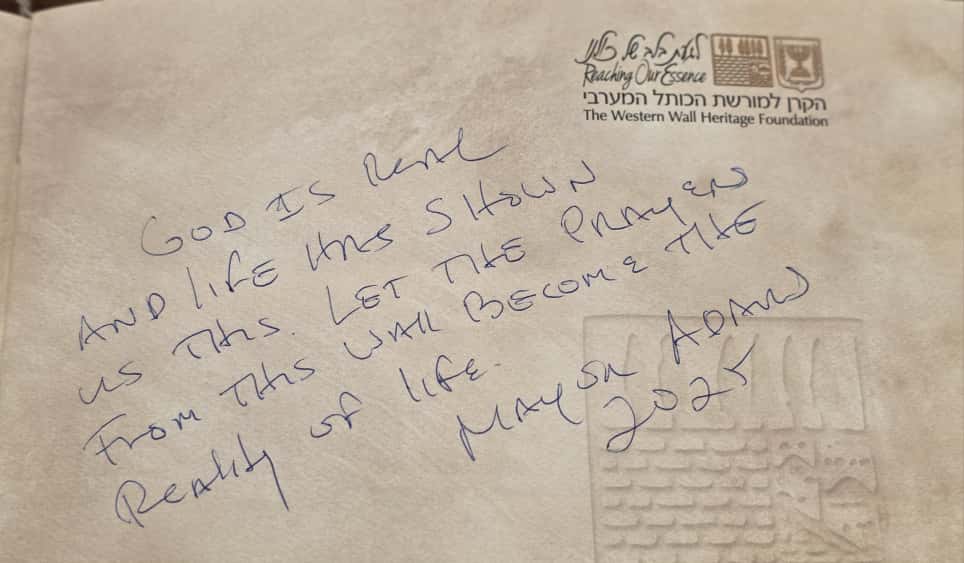 לגעת בלב של כולנו
Reaching Our Essence
הקרן למורשת הכותל המערבי
The Western Wall Heritage Foundation
GOD IS REAL
AND LIFE HAS SHOWN
US THIS. LET THE PRAYER
FROM THIS WALL BECOME THE
REALITY OF LIFE.
MAYOR ADAMS
2025